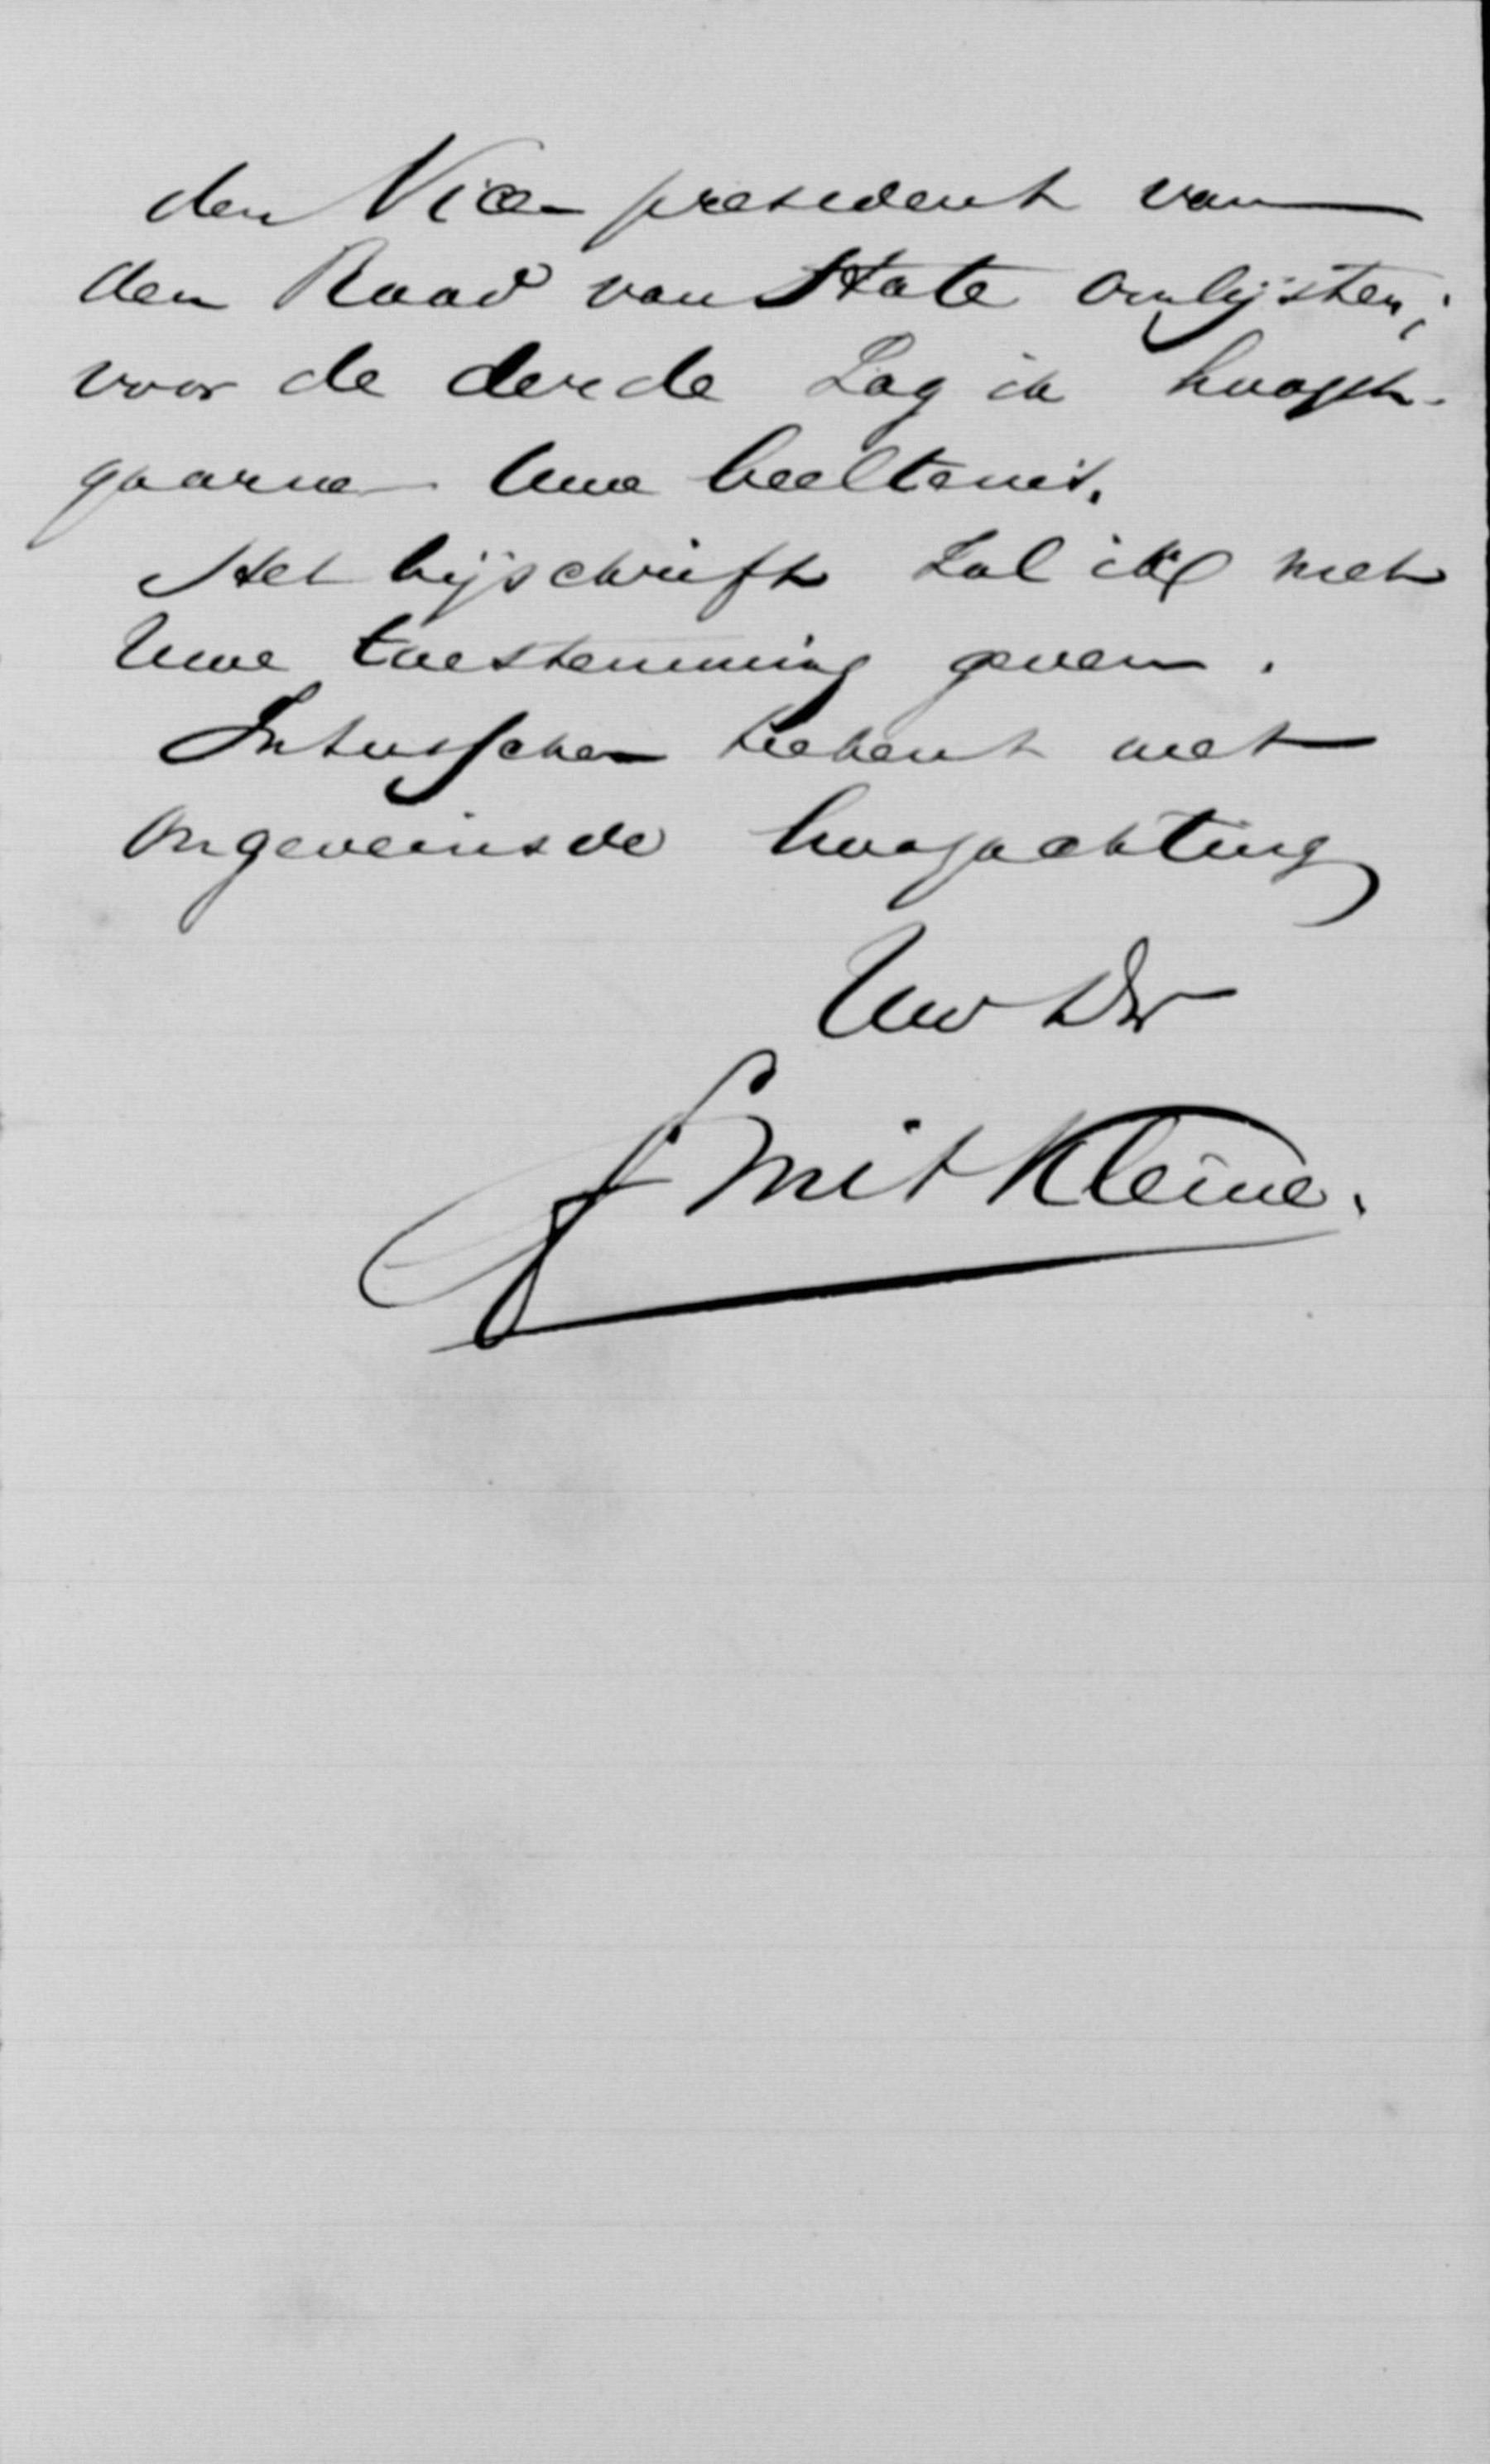 den Vice-president van
den Raad van State omlijsten;
voor de derde zag ik hoogst-
gaarne Uwe beeltenis.
Het bijschrift zal ik met
Uwe toestemming geven.
Intusschen teekent met
ongeveinsde hoogachting
Uw Dr
Smit Kleine.